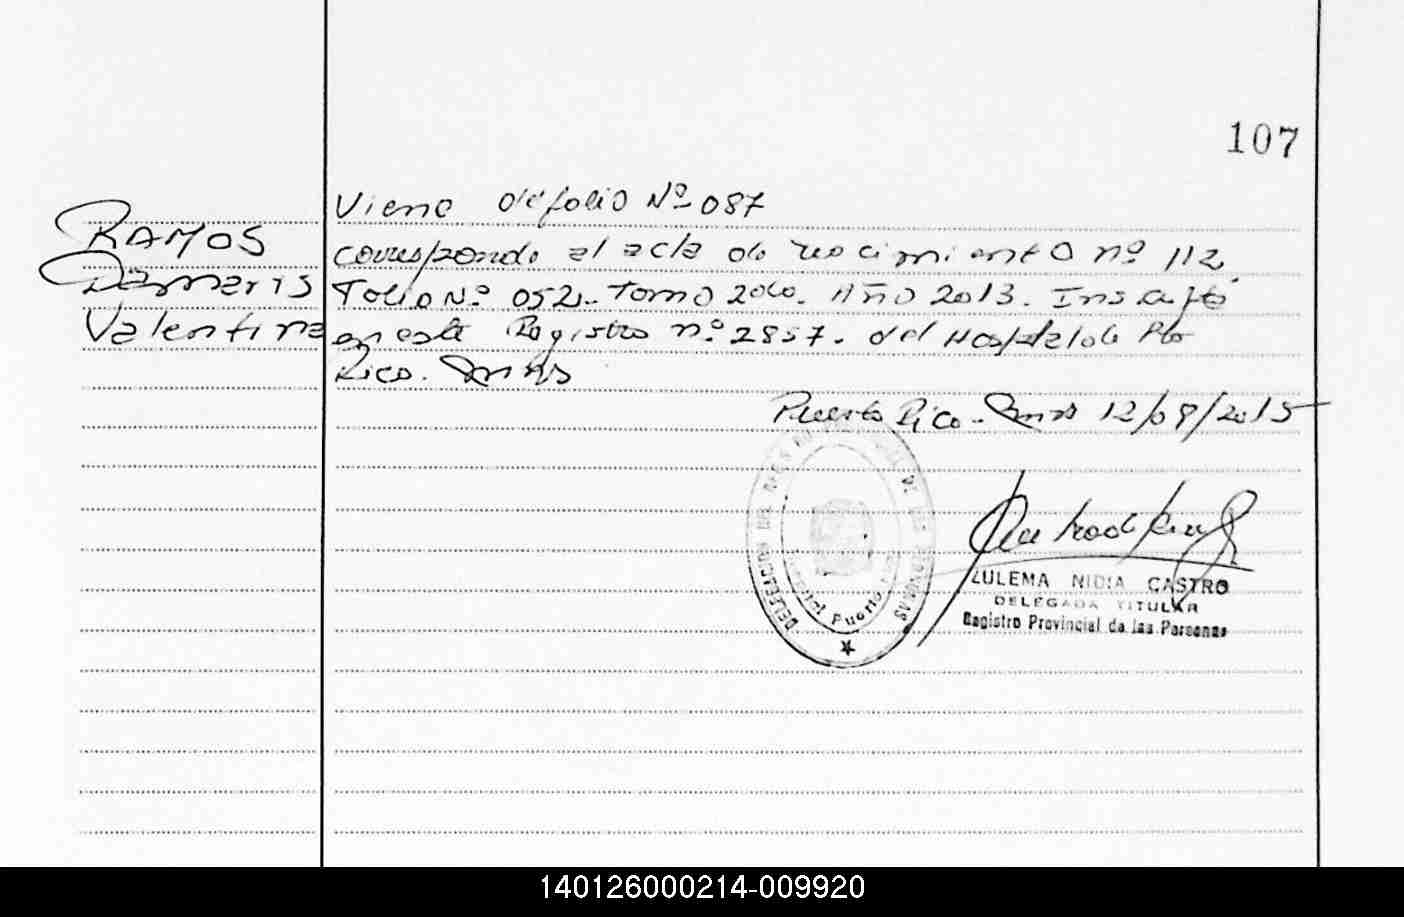 107
Viene del folio Nº 087
RAMOS
Damaris
Valentina
corresponde al acta de nacimiento nº 112
Folio Nº 052. Tomo 2do. Año 2013. Inscripto
en este Registro nº 2857. del Hospital de Pto
Rico. Mnes
Puerto Rico. Mnes 12/08/2015
ZULEMA NIDIA CASTRO
DELEGADA TITULAR
Registro Provincial de las Personas
DELEGACION DEL REGISTRO DE LAS PERSONAS
Puerto
140126000214-009920